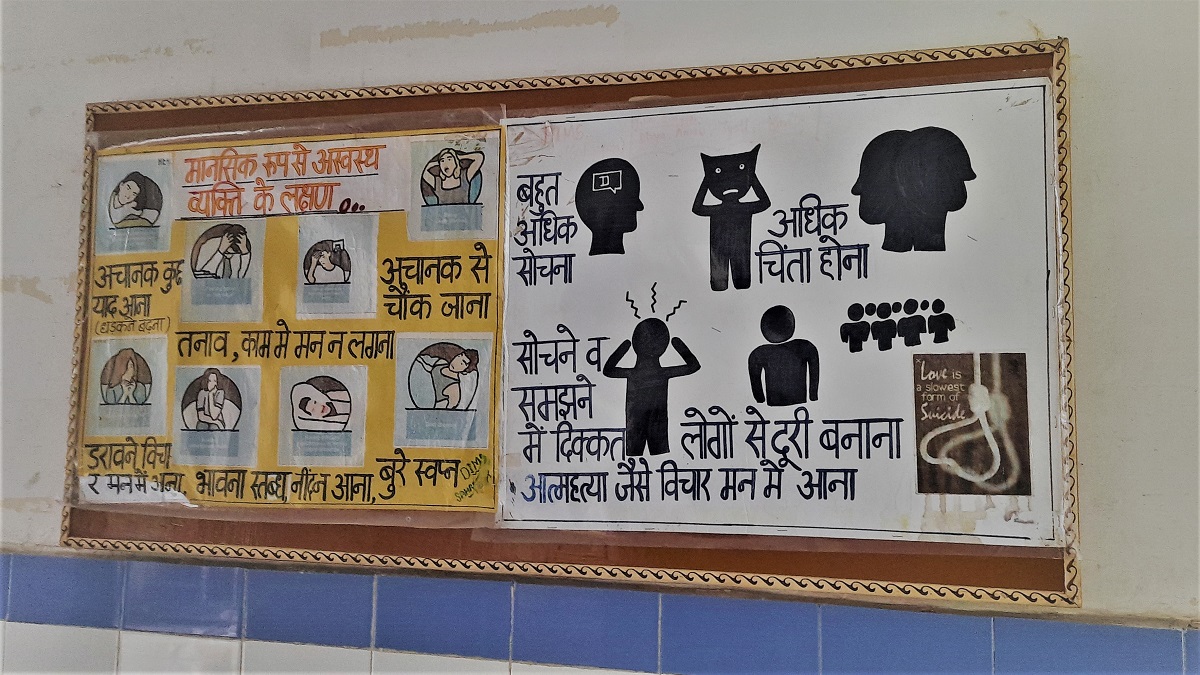 मानसिक रूप से अस्वस्थ
व्यक्ति के लक्षण...
अचानक कुछ
याद आना
(धड़कने बढ़ना)
अचानक से
चौंक जाना
तनाव, काम मे मन न लगना
डरावने विचा
र मन मे आना,
भावना स्तब्ध, नींद न आना,
बुरे स्वप्न
DIMS
बहुत
अधिक
सोचना
अधिक
चिंता होना
सोचने व
समझने
में दिक्कत
लोगों से दूरी बनाना
आत्महत्या जैसे विचार मन में आना
Love is
a slowest
form of
Suicide